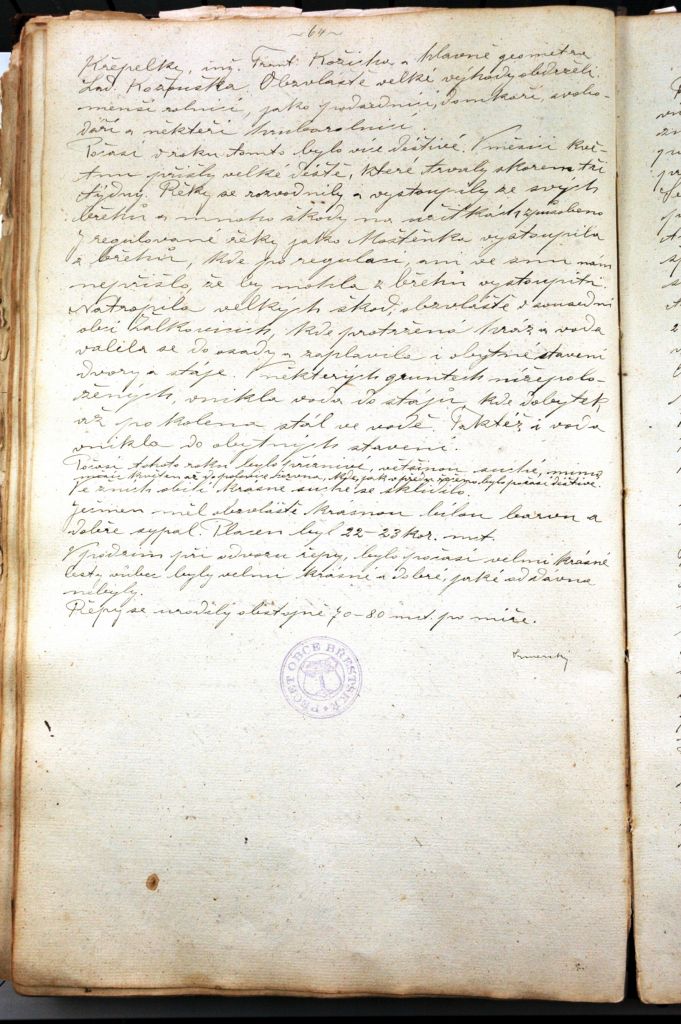 ~64~
Křepelka, inž. Frant. Kožicha a hlavně geometra
Lad. Kožouška. Obzvláště velké výhody obdrželi
menší rolníci, jako podsedníci, domkaři, svobo-
dáři a někteří hruborolníci.
Počasí v roku tomto bylo více deštivé. V měsíci kvě-
tnu přišly velké deště, které trvaly skorem tři
týdny. Řeky se rozvodnily a vystoupily ze svých
břehů a mnoho škody na užitkách způsobeno
I regulované řeky jako Moštěnka vystoupila
z břehů, kde po regulaci, ani ve snu nám
nepřišlo, že by mohla z břehů vystoupiti.
Natropila velkých škod, obzvláště v sousední
obci Žalkovicích, kde protržena hráz a voda
valila se do osady a zaplavila i obytné stavení
dvory a stáje. V některých gruntech nížepolo-
žených, vnikla voda do stájů, kde dobytek,
až po kolena stál ve vodě. Taktéž i voda
vnikla do obytných stavení.
Počasí tohoto roku bylo příznivé, většinou suché, mimo
měsíc květen až do polovice června, kdy jak předu psáno, bylo počasí deštivé.
Ve žních obilí krásně suché se sklidilo.
Ječmen měl obzvláště krásnou bílou barvu a
dobře sypal. Placen byl 22-23 kor. mct.
Z podzim při odvozu řepy, bylo počasí velmi krásné
cesty vůbec byly velmi krásné a dobré, jaké od dávna
nebyly.
Řepy se urodily obstojně 70-80 mct. po míře.
PEČEŤ OBCE BŘESTSKÉ